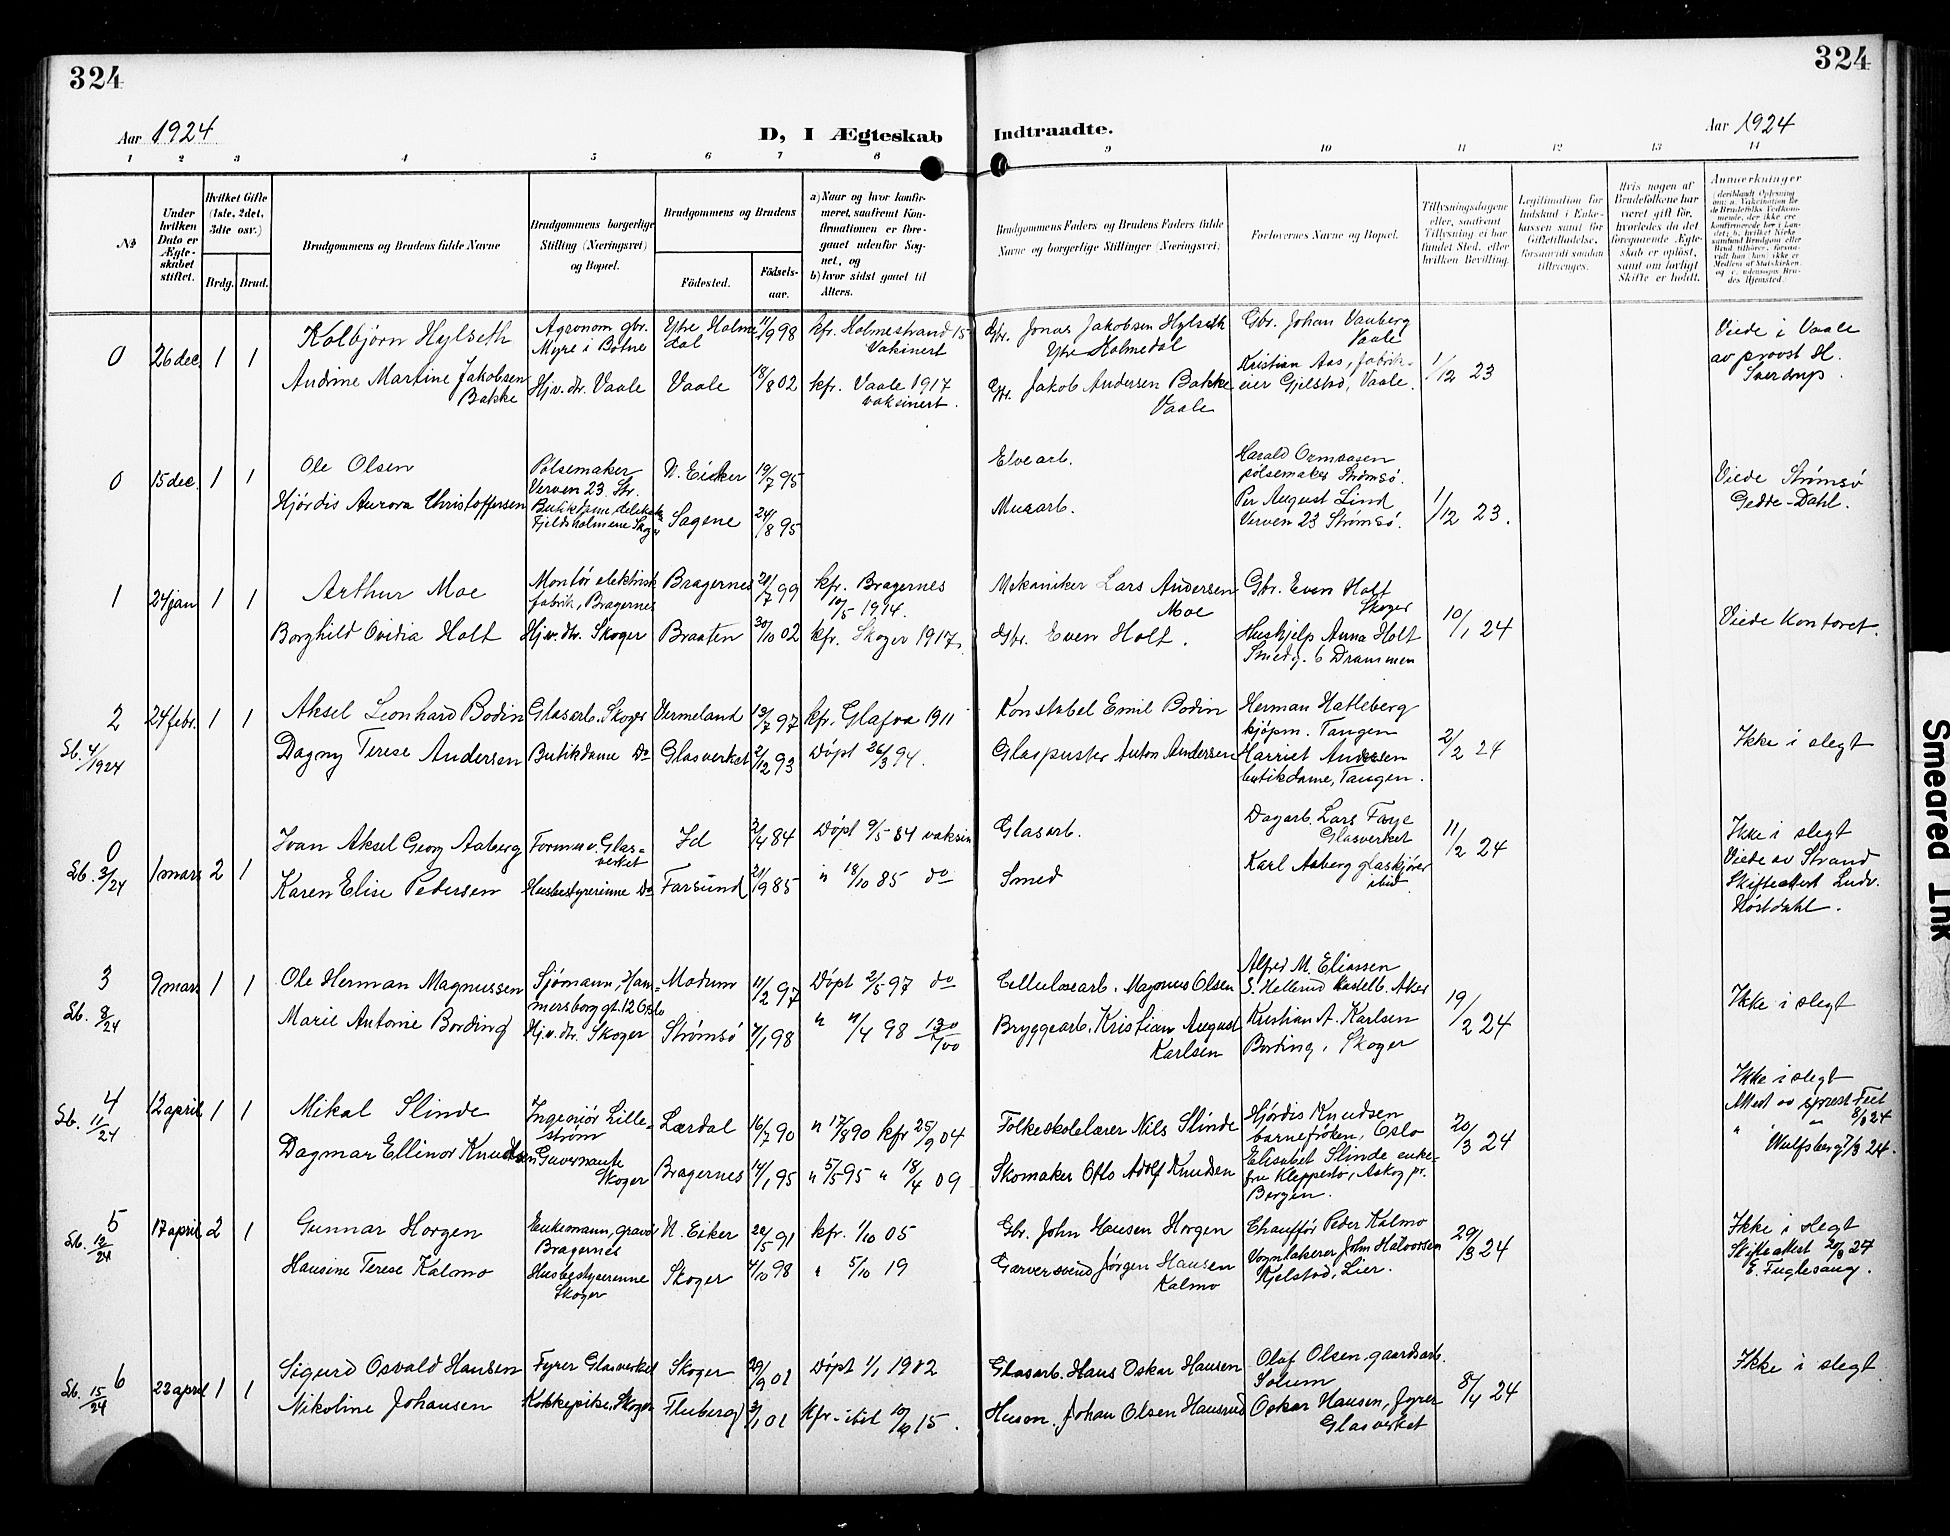 324
324
Aar 1924
D, I Ægteskab Indtraadte.
Aar 1924
1 2 3 4 5 6 7 8 9 10 11 12 13 14
№
Under hvilken Dato er Ægteskabet stiftet.
Hvilket Gifte (1ste, 2det, 3dte osv.)
Brdg. Brud.
Brudgommens og Brudens fulde Navne
Brudgommens borgerlige Stilling (Næringsvei) og Bopæl.
Brudgommens og Brudens
Fødested.
Fødsels-aar.
a) Naar og hvor konfirmeret, saafremt Konfirmationen er foregaaet udenfor Sognet, og
b) hvor sidst gaaet til Alters.
Brudgommens Faders og Brudens Faders fulde Navne og borgerlige Stillinger (Næringsvei)
Forlovernes Navne og Bopæl.
Tillysningsdagene eller, saafremt Tillysning ei har fundet Sted, efter hvilken Bevilling.
Legitimation for Indskud i Enkekassen samt for Giftetilladelse, forsaavidt saadan tiltrænges.
Hvis nogen af Brudefolkene har været gift før, hvorledes da det foregaaende Ægteskab er opløst, samt om lovligt Skifte er holdt.
Anmærkninger
0 26 dec. 1 1
Kolbjørn Hylseth
Agronom gbr.
Myre i Botne
Ytre Holmedal
11/9 98
kfr. Holmestrand 15
Vakinert
Gbr. Jonas Jakobsen Hylseth
Ytre Holmedal
Gbr. Johan Vauberg
Vaale
Andrine Martine Jakobsen
Bakke
Hjv. dtr. Vaale
Vaale
18/8 02
kfr. Vaale 1917
vaksinert.
Gbr. Jakob Andersen Bakke
Vaale
Kristian Aas, fabrikeier Gjelstad, Vaale.
1/12 23
Viede i Vaale
av provst H.
Sverdrup.
0 15 dec. 1 1
Ole Olsen
Pølsemaker
Verven 23 Str.
N. Eiker
19/7 95
Elvearb.
Harald Ormaasen
pølsemaker Strømsø.
Hjørdis Aurora Christoffersen
Fjeldsholmene Skoger
Sagene
24/8 95
Murarb.
Per August Lind
Verven 23 Strømsø.
1/12 23.
Viede Strømsø
Gedde-Dahl.
1 24 jan 1 1
Arthur Moe
Montør elektrisk
fabrik, Bragernes
Bragernes
21/7 99
kfr. Bragernes
10/5 1914.
Mekaniker Lars Andersen
Moe
Gbr. Even Holt
Skoger
Borghild Ovidia Holt
Hjv. dtr. Skoger
Braaten
30/10 02
kfr. Skoger 1917.
Gbr. Even Holt.
Hushjelp Anna Holt
Smedg. 6 Drammen
10/1 24
Viede Kontoret.
2 24 febr. 1 1
Lb. 4/1924
Aksel Leonhard Bodin
Glasarb. Skoger
Vermeland
13/7 97
kfr. Glafva 1911
Konstabel Emil Bodin
Herman Hatleberg
kjøpm. Tangen
Dagny Terese Andersen
Butikdame Do
Glasverket
2/12 93
Døpt 26/3 94.
Glaspuster Anton Andersen
Harriet Andersen
butikdame, Tangen.
2/2 24
Ikke i slegt
0 1 mars 2 1
Lb. 3/24
Ivan Aksel Georg Aaberg
Former v. Glasverket
Id
2/4 84
Døpt 9/5 84 vaksin
Glasarb.
Dagarb. Lars Faye
Glasverket
Karen Elise Pedersen
Husbestyrerinne Do
Farsund
21/9 85
" 18/10 85 do
Smed
Karl Aaberg glaskjører
ibid.
11/2 24
Ikke i slegt
Viede av Strand
Skifteattest Ludv.
Høstdahl.
3 9 mars 1 1
Lb. 8/24
Ole Herman Magnussen
Sjømann, Hammersborg gt. 12 Oslo
Modum
11/2 97
Døpt 2/5 97 do
Cellulosearb. Magnus Olsen
Alfred M. Eliassen
S. Hellerud Kastelb. Aker
Marie Antonie Bording
Hjv. dtr. Skoger
Strømsø
7/1 98
" 11/4 98
Bryggearb. Kristian August
Karlsen
Kristian A. Karlsen
Bording, Skoger
19/2 24
Ikke i slegt
4 12 april 1 1
Lb. 11/24
Mikal Slinde
Ingeniør Lillestrøm
Lærdal
16/7 90
" 17/8 90 kfr 25/9 04
Folkeskolelærer Nils Slinde
Hjørdis Knudsen
barnefrøken, Oslo
Dagmar Ellinor Knudsen
Guvernante
Skoger
Bragernes
14/1 95
" 5/5 95 " 18/4 09
Skomaker Otto Adolf Knudsen
Elisabet Slinde enkefru Kleppestø, Askøy pr.
Bergen.
20/3 24
Ikke i slegt
Attest av sprest Feet
8/3 24
" " " Wulfsberg 7/3 24.
5 17 april 2 1
Lb. 12/24
Gunnar Horgen
Enkemann, gravør
Bragernes
N. Eiker
22/5 91
kfr. 1/10 05
Gbr. John Hansen Horgen
Chauffør Peder Kalmo
Hansine Terese Kalmo
Husbestyrerinne
Skoger
Skoger
4/10 98
" 5/10 19
Garversvend Jørgen Hansen
Kalmo
Vognlakerer John Halvorsen
Kjelstad, Lier.
29/3 24
Ikke i slegt
Skifteattest 20/3 24
E. Fuglesang.
6 22 april 1 1
Lb. 15/24
Sigurd Osvald Hansen
Fyrer Glasverket
Skoger
29/9 01
Døpt 1/1 1902
Glasarb. Hans Oskar Hansen
Olaf Olsen, gaardsarb.
Solum
Nikoline Johansen
Kokkepike, Skoger
Fluberg
3/1 01
Kfr. ibid 10/6 15.
Husm. Johan Olsen Hansrud
Oskar Hansen, fyrer
Glasverket
8/4 24
Ikke i slegt
Smeared Ink